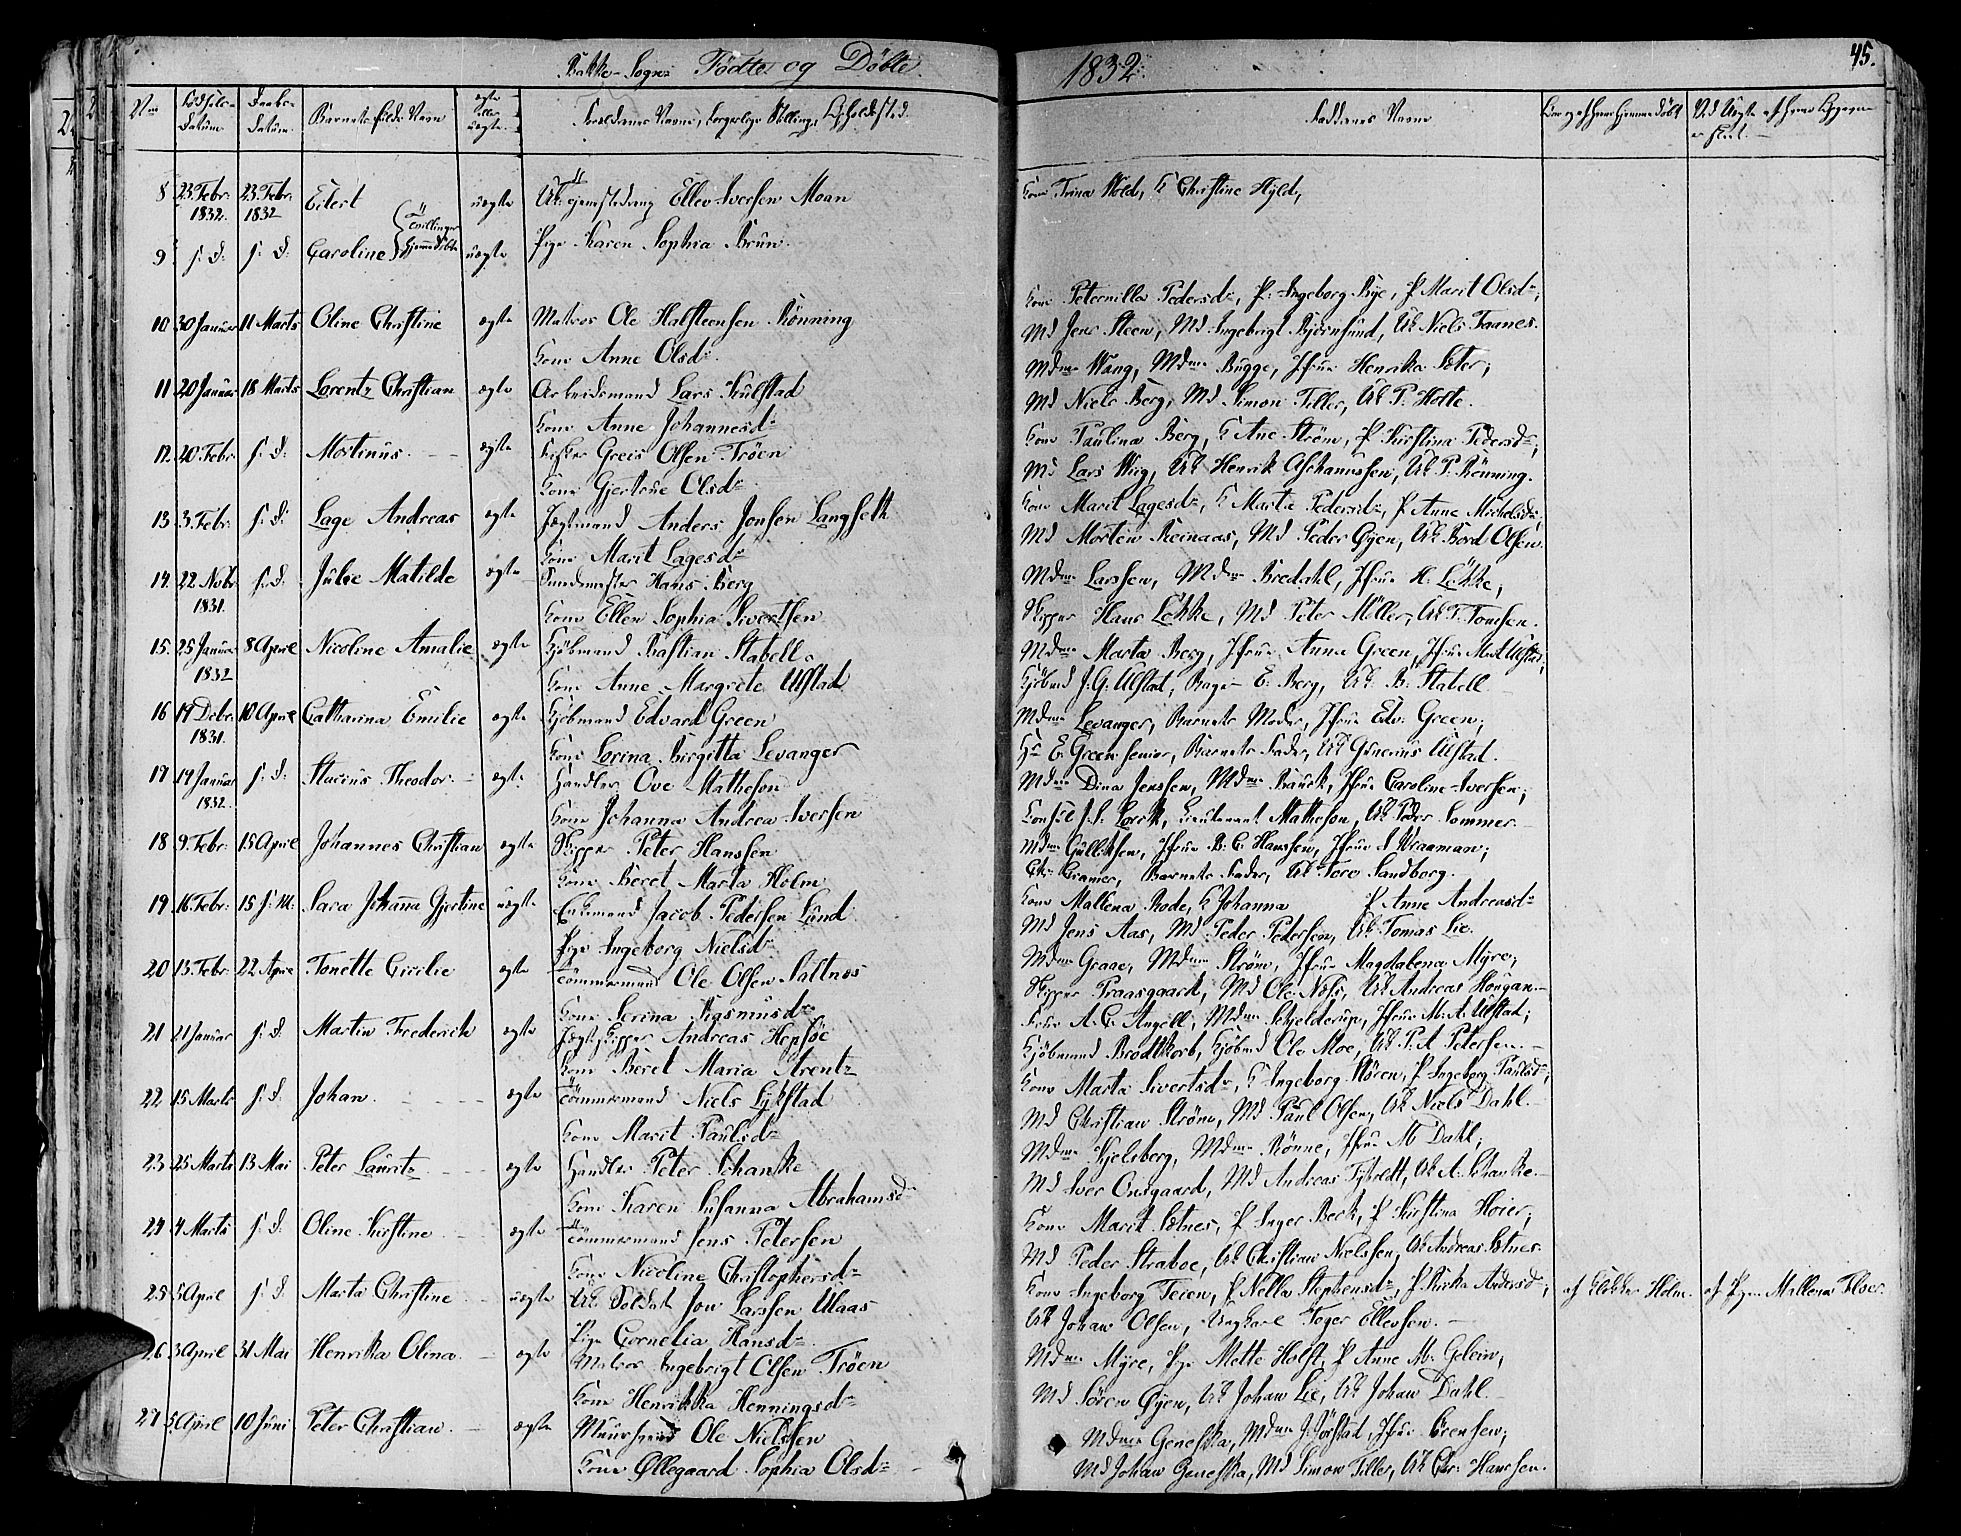 Bakke-Sogn: Fødte og Døbte. 1832. 45.
Barnets fulde Navn
Faddernes Navne
8 23 Febr. 1832. 23 Febr. 1832 Eilert uægte Ellev Iversen Moan
Kone Trina Wold, K Christine Hyld,
9 s. D. s. D. Caroline Tvillinger hjemmedøbte uægte Pige Karen Sophia Brun.
10 30 Januar 11 Marts Oline Christine ægte Matros Ole Halsteensen Rönning
Kone Anne Olsd.
Kone Peternilla Pedersd., P. Ingeborg Bye, P Marit Olsd.,
Md Jens Steen, Md Ingebrigt Björnsund, Uk Niels Taanes.
11 20 Januar 18 Marts Lorentz Christian ægte Arbeidsmand Lars Kulstad
Kone Anne Johannesd.
Mdme Wang, Mdme Bugge, Jfrue Henrika Sæter,
Md Niels Berg, Md Simon Tiller, Uk P. Holte.
12. 20 Febr. s. D. Mortinus. ægte Greis Olsen Tröen
Kone Gjertrue Olsd.
Kone Paulina Berg, K Ane Ström, P Kirstina Pedersd.,
Md Lars Wiig, Uk Henrik Aschanussen, Uk P. Rönning.
13 3. Febr. s. D. Lage Andreas ægte Jægtmand Anders Jonsen Langseth
Kone Marit Lagesd.
Kone Marit Lagesd., K Marta Pedersd., P Anne Michelsd.,
Md Morten Reinaas, Md Peder Öyen, Uk Bord Olsen.
14. 22 Novb. 1831. s. D. Julie Matilde ægte Hans Berg
Kone Ellen Sophia Sivertsen
Mdme Larssen, Mdme Bredahl, Jfrue H. Lökke,
Skipper Hans Lökke, Md Peter Möller, Uk P. Tomsen.
15. 25 Januar 1832 8 April Nicoline Amalie ægte Kjöbmand Bastian Stabell
Kone Anne Margrete Ulstad
Mdme Marta Berg, Jfrue Anna Green, Jfrue M. A. Ulstad,
Kjöbmd J. G. Ulstad, Bager E. Berg, Uk. B. Stabell
16 19 Debr. 1831. 10 April Catharina Emilie ægte Kjöbmand Edvard Green
Kone Lorina Birgitta Levanger
Mdme Levanger, Barnets Moder, Jfrue Edv. Green,
Hr E. Green senior, Barnets Fader, Uk Ulstad.
17 19 Januar 1832. s. D. Theodor. ægte Handler Ove Matheson
Kone Johanna Andrea Iversen
Mdme Dina Jenssen, Mdme Bauck, Jfrue Caroline Iversen,
Consul Lorck, Lieutenant Matheson, Uk Peder Sommer.
18 9. Febr. 15 April Johannes Christian ægte Skipper Peter Hanssen
Kone Beret Marta Holm
Mdme Gulliksen, Jfrue B. C. Hanssen, Jfrue S Wraaman,
Chr. Cramer, Barnets Fader, Uk Tore Sandborg.
19 16. Febr. 15 s. M. Sara Johanna Gjertine uægte Enkemand Jacob Pedersen Lund
Pige Ingeborg Nielsd.
Kone Mallena Rode, K Johanna P Anne Andreasd.
Md Jens Aas, Md Peder Pedersen, Uk Tomas Lie.
20 13. Febr. 22 April Tonette Cicilie ægte Tömmermand Ole Olsen Saltnes
Kone Serina Sigsmusd.
Mdme Graae, Mdme Ström, Jfrue Magdalena Myre,
Skipper Praasgaard, Md Ole Næss, Uk Andreas Hougan.
21 21 Januar s. D. Martin Frederick ægte Jægtskipper Andreas Hopsöe
Kone Beret Maria Arentz
Frue A. C. Angell, Mdme Schjelderup, Jfrue M. A. Ulstad,
Kjöbmand Brodtkorb, Kjöbmd Ole Moe, Uk P. A Petersen.
22 15 Marts s. D. Johan. ægte Tömmermand Niels Lykstad
Kone Marit Paulsd.
Kone Marta Sivertsd., K Ingeborg Stören, P Ingeborg Paulsd.,
Md Christian Ström, Md Paul Olsen, Uk Niels Dahl.
23 25 Marts 13 Mai Peter Lauritz ægte Handler Peter Schanke
Kone Karen Susanna Abrahamsd.
Mdme Hjelsberg, Mdme Rönne, Jfrue M Dahl,
Md Iver Onsgaard, Md Andreas Tystedt, Uk A. Schanke.
24 4 Marts s. D. Oline Kirstine ægte Tömmermand Jens Petersen
Kone Nicoline Christophersd.
Kone Marit Sætnes, P Inger Beck, P Kirstina Höier,
Md Peder Straboe, Uk Christian Nielssen, Uk Andreas Sætnes.
25 5 April s. D. Marta Christine uægte Uk Soldat Jon Larssen Ulaas
Pige Cornelia Hansd.
Kone Ingeborg Teien, P Nella Stephensd., P Kirka Andersd.,
Uk Johan Olsen, Ungkarl Toger Ellevsen.
af Klokker Holm. af Pigen Mallena Floer.
26 3 April 31 Mai Henrika Olina ægte Matros Ingebrigt Olsen Tröen
Kone Henrikka Henningsd.
Mdme Myre, Pige Mette Holst, P Anne M. Gelein,
Md Sören Öyen, Uk Johan Lie, Uk Johan Dahl.
27 5 April 10 Juni Peter Christian ægte Muursvend Ole Nielssen
Kone Öllegaard Sophia Olsd.
Mdme Geneska, Mdme J. Jörstad, Jfrue Sörensen,
Md Johan Geneska, Md Simon Tiller, Uk Chr. Hanssen.